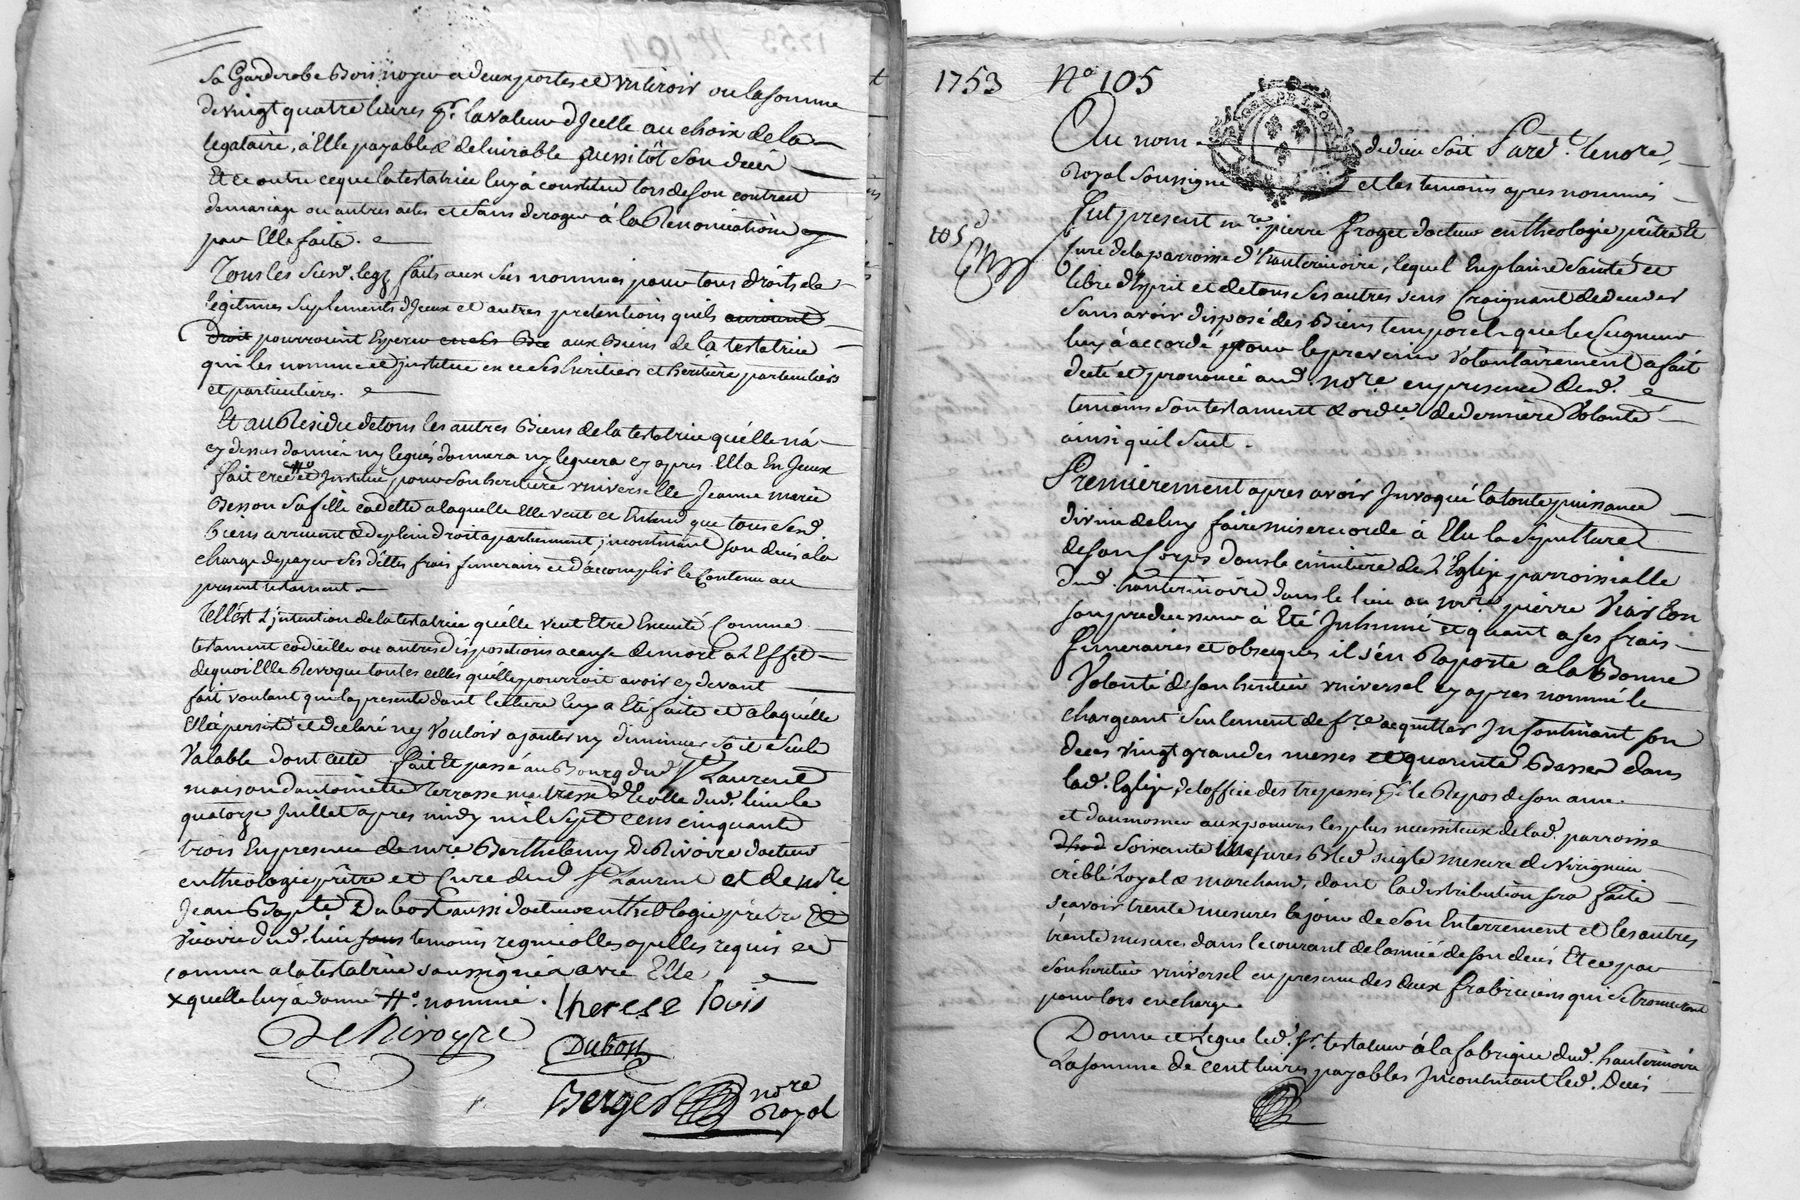 Sa Garderobe Bois noyer a deux portes et un tiroir ou la somme
de vingt quatre livres pr. la valeur d'Jcelle au choix de la
legataire, a Elle payable & delivrable aussitôt son decés
Et ce outre ce que la testatrice luy à constitué lors de son contract
de mariage ou autres actes et sans deroger à la Renonciation
par Elle faite.
Tous les susd. legz faits aux sus nommés pour tous droits de
legitimes suplements d'Jceux et autres pretentions quils auroient
Droit pourroient Esperer aux Biens de la testatrice
qui les nomme et jnstitue en ce ses heritiers et heritiere particuliers
et particulieres.
Et au Residu de tous les autres Biens de la testatrice qu'elle n'à
cy dessus donnés ny legués donnera ny leguera cy apres. Ella En Jceux
fait creé et Jnstitué pour son heritiere universelle Jeanne marie
Besson sa fille cadette a laquelle Elle veut et Entend que tous sesd.
biens arrivent & de plein droit apartiennent jncontinant son decés a la
charge de payer ses dettes frais funeraires et d'accomplir le Contenu au
present testament.
Tell'est L'jntention de la testatrice qu'elle veut Etre Executé Comme
testament codicille ou autres dispositions a cause de mort a L'Effet
de quoi Elle Revoque toutes celles qu'elle pourroit avoir cy devant
fait voulant que la presente dont lecture luy a Eté faite et a laquelle
Ell'à persisté et declaré ny Vouloir ajouter ny diminuer soit seule
Valable dont acte fait Et passé au Bourg dud. St. Laurent
maison d'antoinette Terrasse maitresse d'Ecolle dud. lieu le
quatorze Juillet apres midy mil sept cens cinquante
trois En presence de mre. Barthelemy DeRivoire docteur
en theologie prêtre et Curé dud. St. Laurent et de mre.
Jean Bapte. Dubost aussi docteur en theologie prêtre &
Vicaire dud. lieu temoins regnicolles apellés requis et
connus a la testatrice soussignés avec Elle.
x quelle luy à donné tt. nommé. therese
DeRivoyre
Dubost
Berger nore
Royal
1753 No. 105
Au nom de dieu soit Pardt. le nore.
Royal soussigné et les temoins apres nommés
105
Fut present mre. pierre Froget docteur en theologie prêtre Et
Curé de la parroisse d'hauterivoire, lequel En plaine Santé et
libre d'Esprit et de tous ses autres sens Craignant de deceder
sans avoir disposé des Biens temporels que le Seigneur
luy à accordé pour le prevenir Volontairement a fait
dicté et prononcé aud. nore. en presence desd.
temoins son testament & ordce. de derniere Volonté
ainsi quil suit.
Premierement apres avoir Jnvoqué la toute puissance
divine de luy faire misericorde à Elu la sepulture
de son Corps dans le cimitiere de L'Eglize parroissialle
dud. hauterivoire dans le lieu ou mre. pierre
son predecesseur à Eté Jnhumé et quant a ses frais
Funeraires et obseques il s'en Raporte a la Bonne
Volonté de son heritier universel cy apres nommé le
chargeant seulement de fre. acquitter Jncontinant son
decés vingt grandes messes et quarente Basses dans
lad. Eglize, et l'office des trepassés pr. le Repos de son ame
et d'aumosner aux pauvres les plus necessiteux de lad. parroisse
soixante mesures Bled seigle mesure de
criblé Loyal & marchand, dont la distribution sera faite
scavoir trente mesures le jour de son Enterrement et les autres
trente mesures dans le courant de l'année de son decés Et ce par
son heritier universel en presence des deux fabriciens qui se trouveront
pour lors en charge.
Donne et legue led. sr. testateur à la fabrique dud. hauterivoire
La somme de cent livres payables Jncontinant led. decés